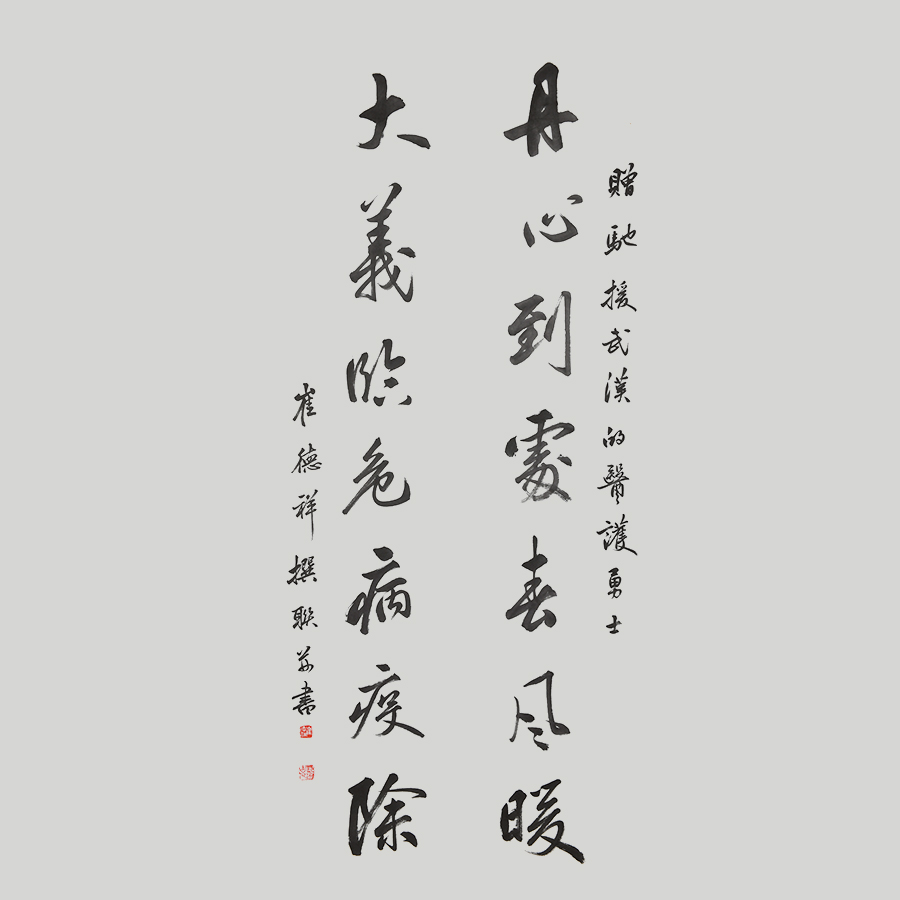 贈馳援武漢的醫護勇士
丹心到處春风暖
大義臨危病疫除
崔德祥撰聯并書